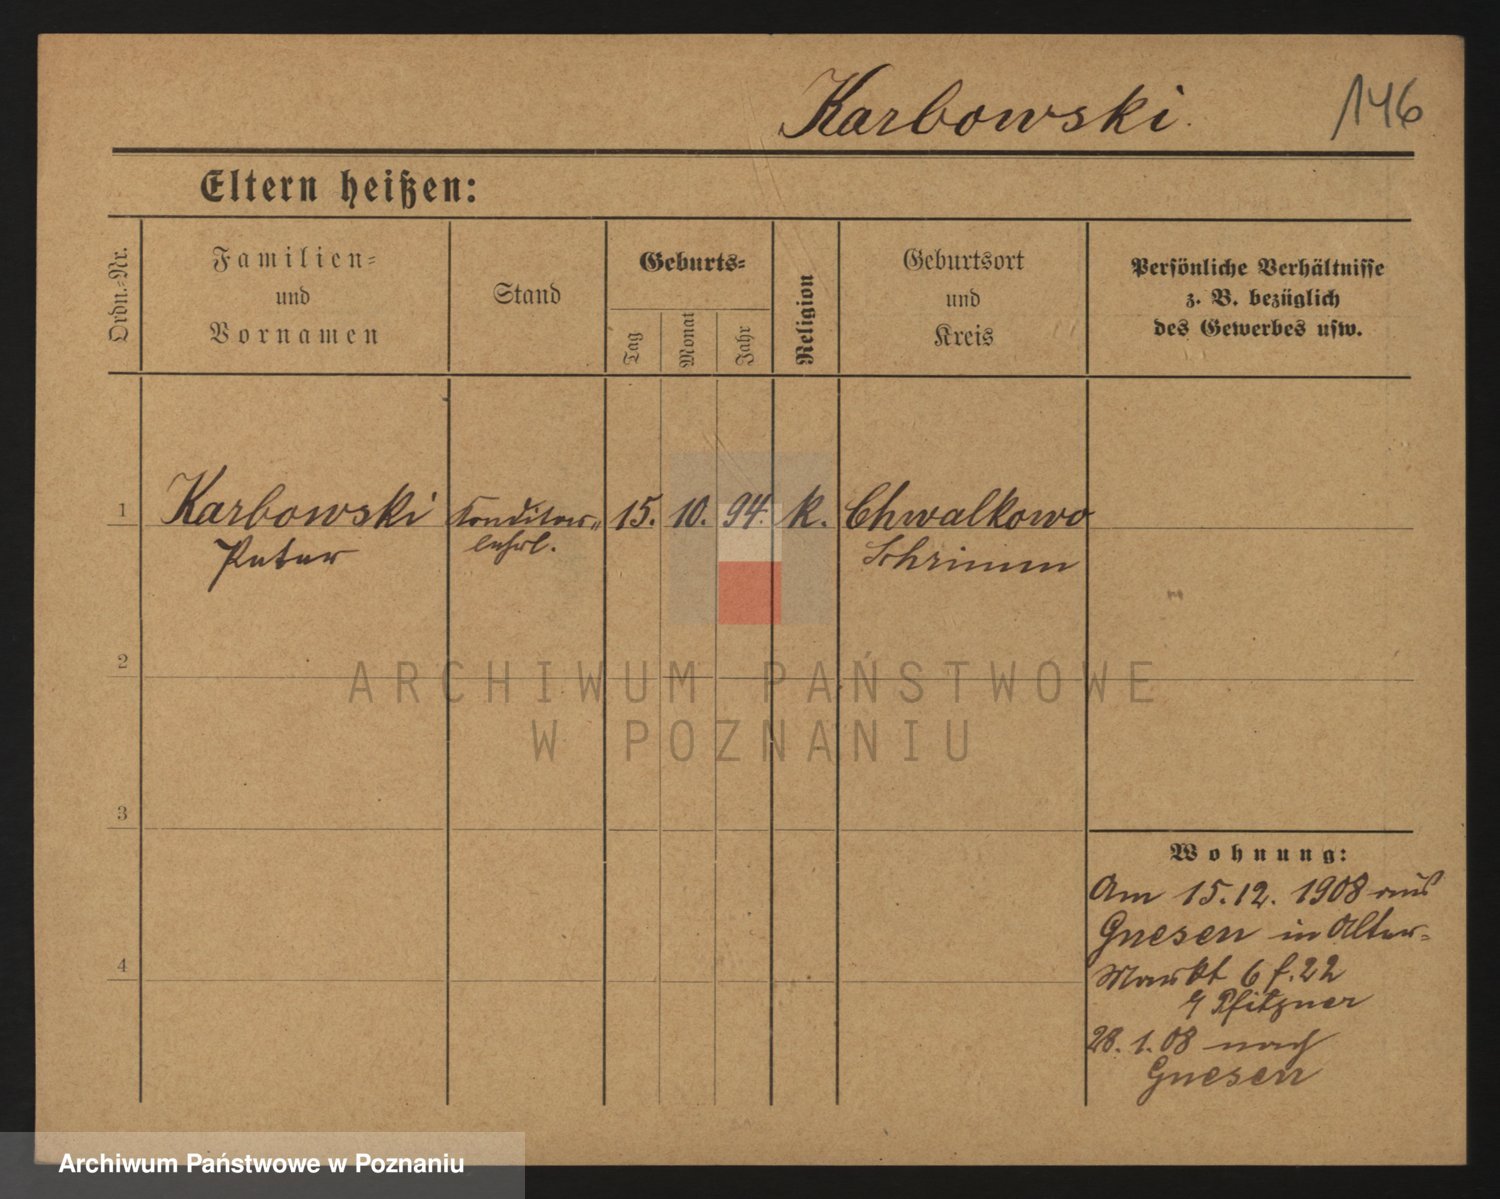 Karbowski.
146
Eltern heißen:
Ordn.-Nr.
Familien-
und
Vornamen
Stand
Geburts-
Tag
Monat
Jahr
Religion
Geburtsort
und
Kreis
Persönliche Verhältnisse
z. B. bezüglich
des Gewerbes usw.
1
Karbowski
Peter
Conditor-
lehrl.
15.
10.
94.
k.
Chwalkowo
Schrimm
2
ARCHIWUM PAŃSTWOWE
W POZNANIU
3
4
Wohnung:
Am 15.12.1908 aus
Gnesen in Alter-
Markt 6 f. 22
Pfitzner
28.1.08 nach
Gnesen
Archiwum Państwowe w Poznaniu